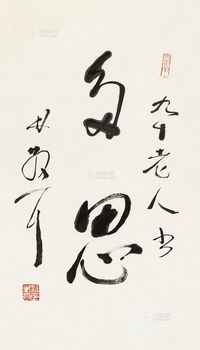 九十老人书
多思
林散耳